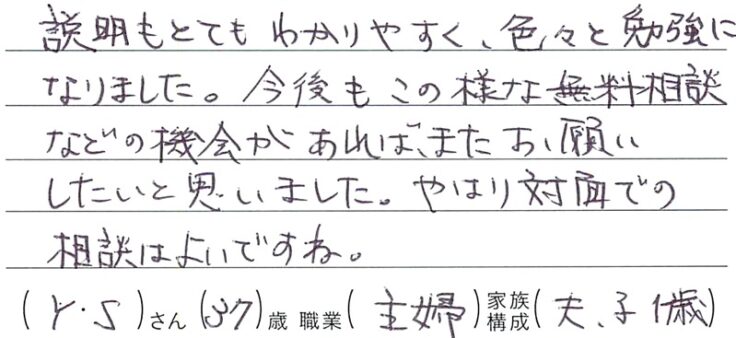 説明もとてもわかりやすく、色々と勉強に
なりました。今後もこの様な無料相談
などの機会があれば、またお願い
したいと思いました。やはり対面での
相談はよいですね。
(Y・S)さん(37)歳 職業(主婦)家族構成(夫、子1歳)